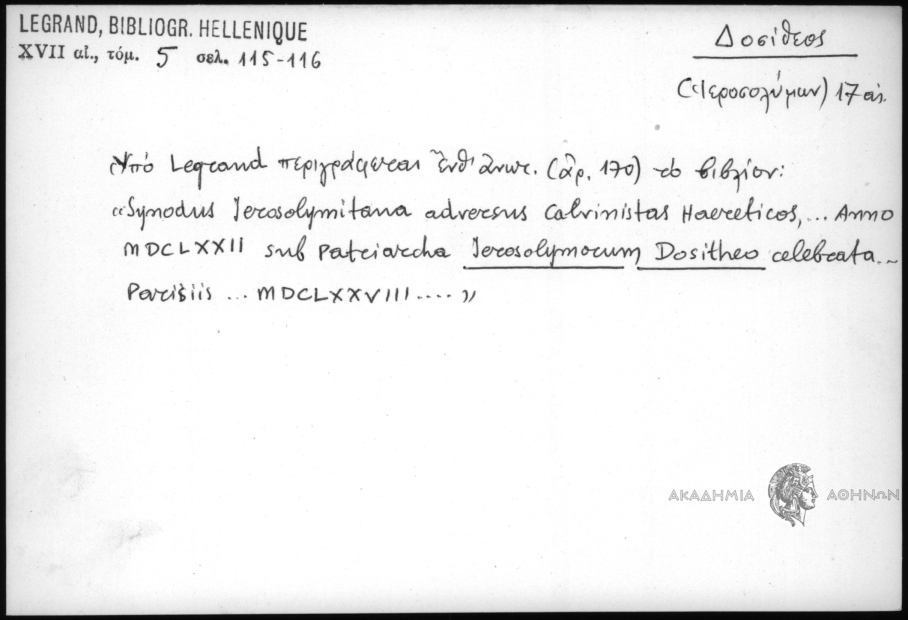 LEGRAND, BIBLIOGR. HELLENIQUE
XVII αἰ., τόμ. 5 σελ. 115-116
Δοσίθεος
(Ἱεροσολύμων) 17 αἰ.
Ὑπό Legrand περιγράφεται ἔνθ' ἀνωτ. (ἀρ. 170) τὸ βιβλίον:
«Synodus Jerosolymitana adversus Calvinistas Haereticos, ... Anno
MDCLXXII sub Patriarcha Jerosolymorum Dositheo celebrata...
Parisiis ... MDCLXXVIII .... »
ΑΚΑΔΗΜΙΑ ΑΘΗΝΩΝ